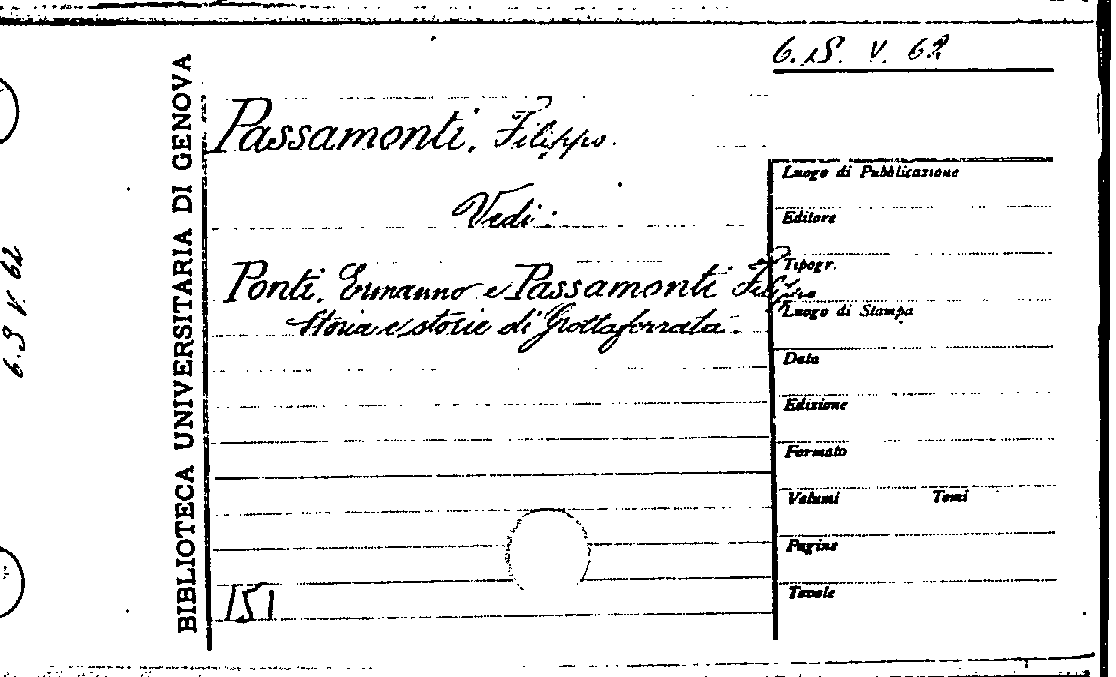 6. S. V. 62
BIBLIOTECA UNIVERSITARIA DI GENOVA
6. S V. 62
Passamonti, Filippo.
Vedi:
Ponti, Ermanno e Passamonti Filippo
Storia e storie di Grottaferrata.
Luogo di Pubblicazione
Editore
Tipogr.
Luogo di Stampa
Data
Edizione
Formato
Volumi Tomi
Pagine
Tavole
151